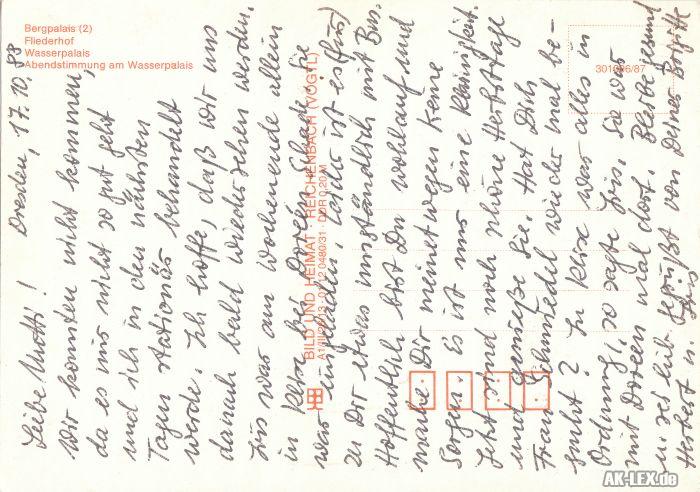 Bergpalais (2)
Fliederhof
Wasserpalais
Abendstimmung am Wasserpalais
301096/87
BILD UND HEIMAT · REICHENBACH (VOGTL)
DDR 0,20 M
Dresden, 17.10.88
Liebe Mutti!
Wir konnten nicht kommen,
da es mir nicht so gut geht
und ich in den nächsten
Tagen stationär behandelt
werde. Ich hoffe, daß wir uns
danach bald wiedersehen werden.
Iris war am Wochenende allein
in bei Doreen, sie
war eingeladen, leider ist es (für)
zu Dir etwas umständlich mit Bus.
Hoffentlich bist Du wohlauf und
machst Dir meinetwegen keine
Sorgen. Es ist nur eine Kleinigkeit.
Jetzt sind noch schöne Herbsttage
und genieße sie. Hat Dich
Frau wieder mal be-
sucht? In war alles in
Ordnung, so sagte Iris. Sie war
mit Doreen mal dort. Bleibe gesund
u. sei lieb gegrüßt von Deiner Brigitte
Herbert u. Iris
AK-LEX.de